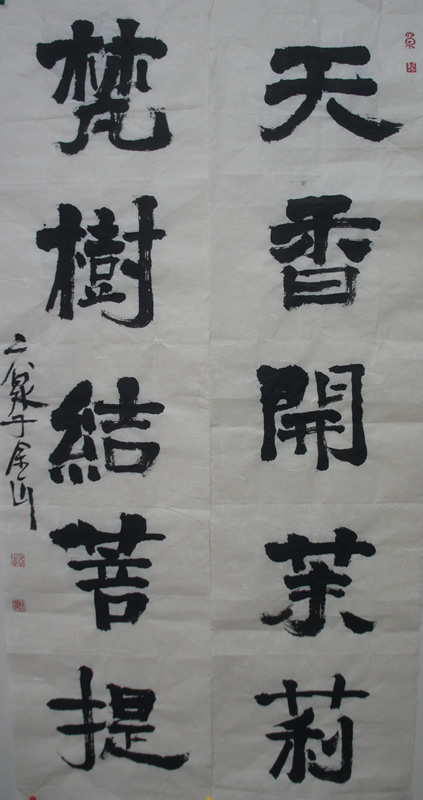 天香開茉莉
梵樹結菩提
二泉子金山